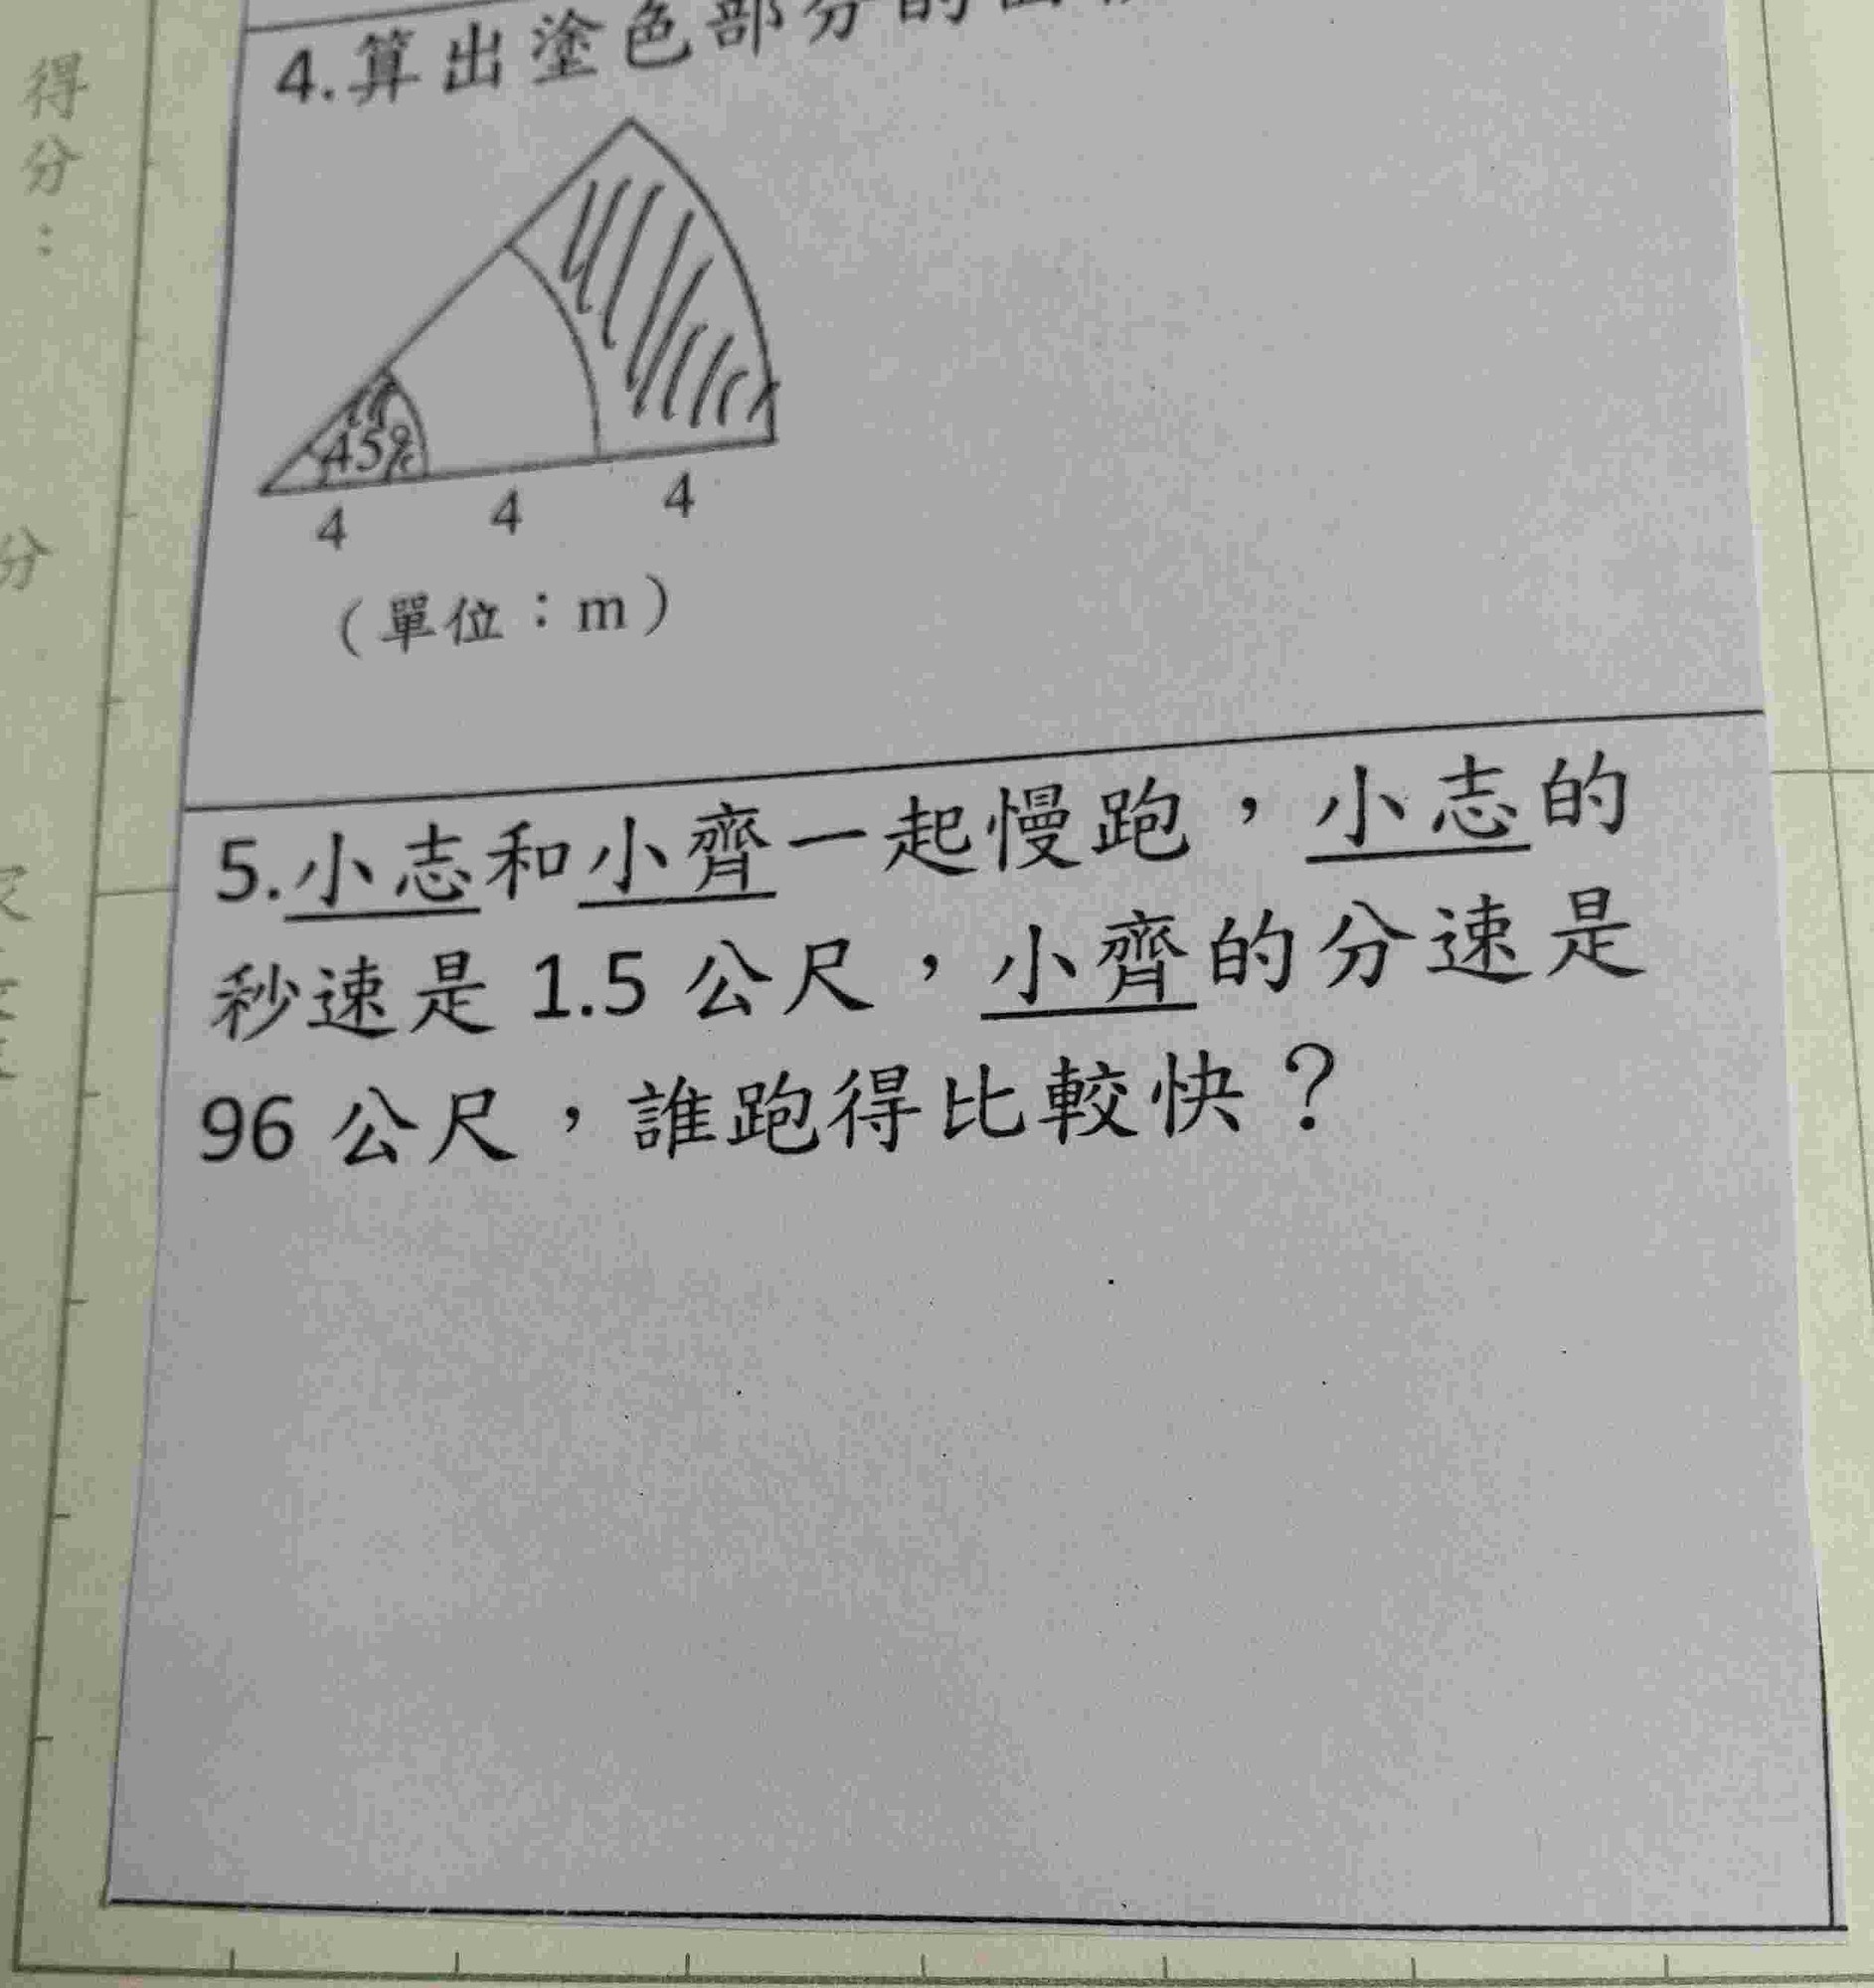 得分：
分
4.算出塗色部分的
45°
4
4
4
（單位：m）
5.小志和小齊一起慢跑，小志的
秒速是 1.5 公尺，小齊的分速是
96 公尺，誰跑得比較快？